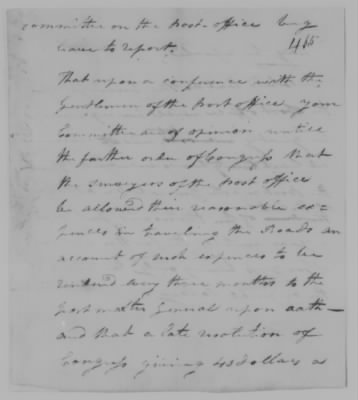 committee on the Post office beg
leave to report.
465
That upon a conference with the
Gentlemen of the Post office your
Committee are of opinion untill
the farther order of Congress that
the surveyors of the Post office
be allowed their reasonable ex=
pences in traveling the Roads an
account of such expences to be
rendered every three months to the
post master General upon oath—
and that a late resolution of
Congress giving 43 dollars a